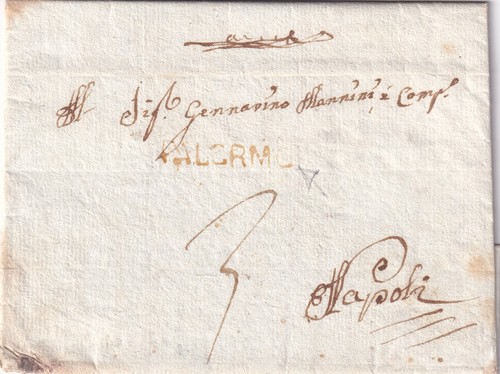 Al Sig.r Gennarino Mannini è Comp.i
PALERMO
3
Napoli